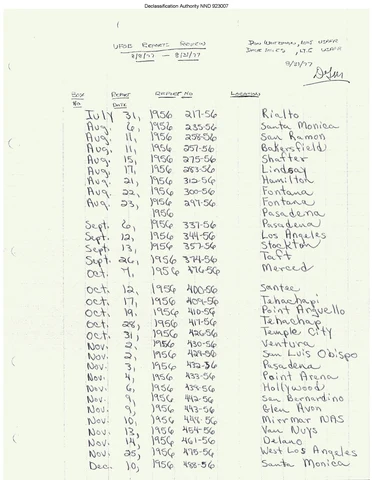 Declassification Authority NND 923007
UFOB REPORTS REVIEW
8/8/77 — 8/21/77
9/21/77
BOX No. REPORT DATE REPORT NO LOCATION
July 31, 1956 217-56 Rialto
Aug. 6, 1956 235-56 Santa Monica
Aug. 11, 1956 258-56 San Ramon
Aug. 11, 1956 257-56 Bakersfield
Aug. 15, 1956 275-56 Shafter
Aug. 17, 1956 283-56 Lindsay
Aug. 21, 1956 312-56 Hamilton
Aug. 22, 1956 300-56 Fontana
Aug. 23, 1956 297-56 Fontana
1956 Pasadena
Sept. 6, 1956 337-56 Pasadena
Sept. 12, 1956 344-56 Los Angeles
Sept. 13, 1956 357-56 Stockton
Sept. 26, 1956 374-56 Taft
Oct. 7, 1956 376-56 Merced
Oct. 12, 1956 400-56 Santee
Oct. 17, 1956 409-56 Tehachapi
Oct. 19, 1956 410-56 Point Arguello
Oct. 28, 1956 417-56 Tehachap
Oct. 31, 1956 426-56 Temple City
Nov. 2, 1956 430-56 Ventura
Nov. 2, 1956 424-56 San Luis Obispo
Nov. 3, 1956 432-56 Pasadena
Nov. 4, 1956 433-56 Point Arena
Nov. 6, 1956 438-56 Hollywood
Nov. 9, 1956 442-56 San Bernardino
Nov. 9, 1956 443-56 Glen Avon
Nov. 10, 1956 448-56 Mirrmar NAS
Nov. 13, 1956 454-56 Van Nuys
Nov. 14, 1956 461-56 Delano
Nov. 25, 1956 475-56 West Los Angeles
Dec. 10, 1956 488-56 Santa Monica